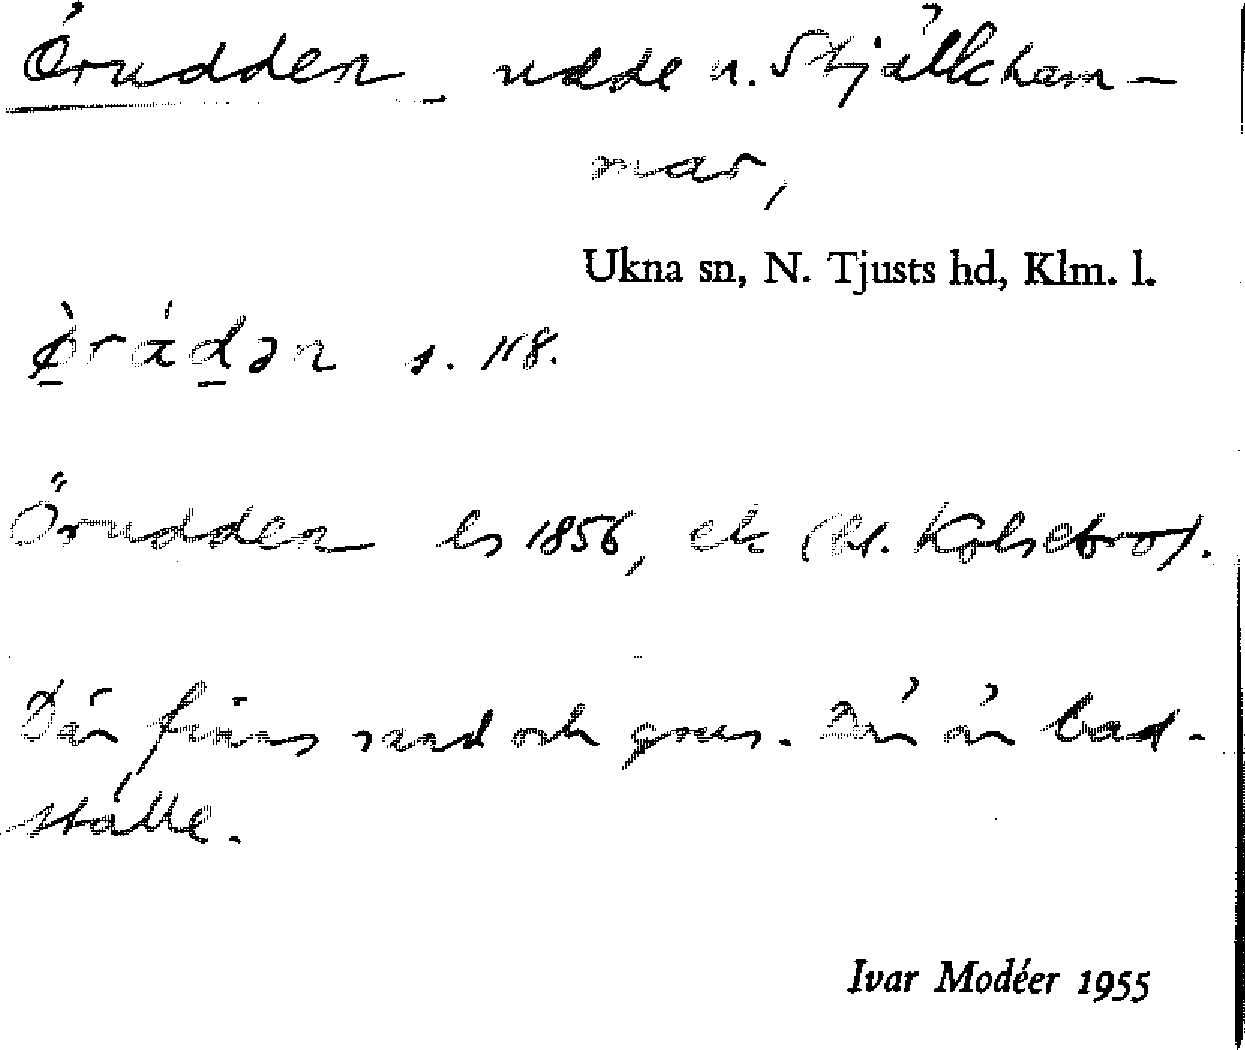 Örudden, udde n. Skjälkham-
mar,
Ukna sn, N. Tjusts hd, Klm. l.
s. 118.
Örudden ls 1856, ek (bl. Kolsebro).
Där finns sand och grus. Där är bad-
ställe.
Ivar Modéer 1955